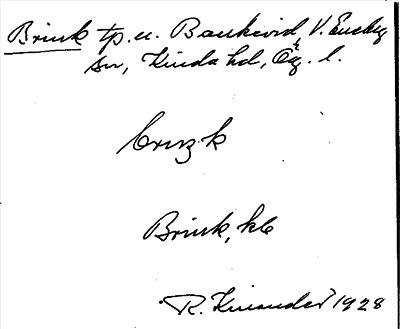 Brink tp. u. Bankevid, V. Eneby
sn, Kinda hd, Ög. l.
brıŋk
Brink, kb
R. Kinander 1928